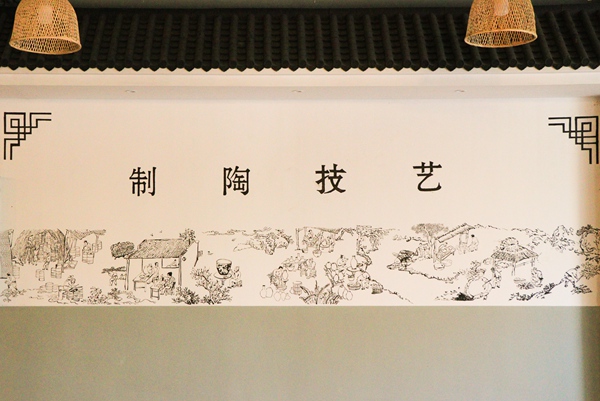 制陶技艺